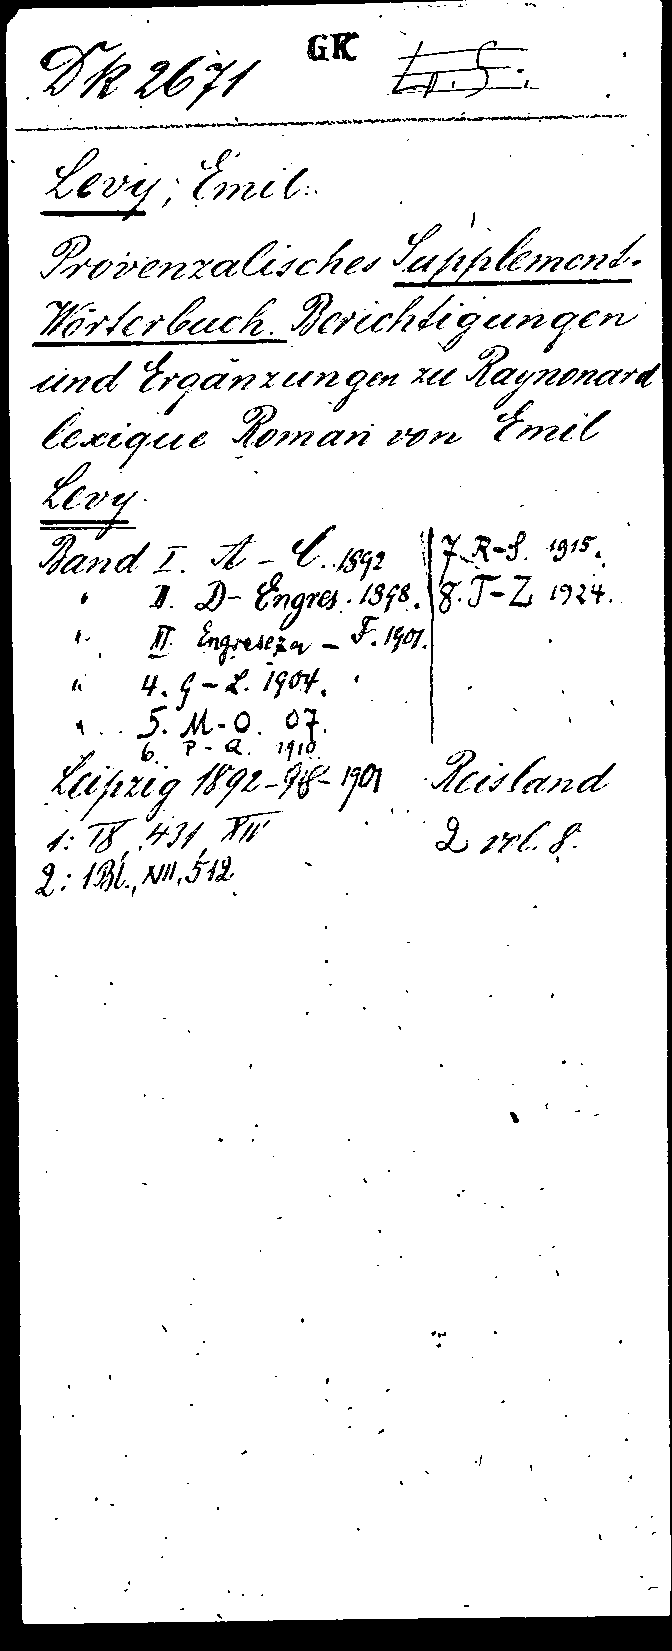 GK
Dk 2671
Levy, Emil.
Provenzalisches Supplement-
Wörterbuch. Berichtigungen
und Ergänzungen zu Raynonard
lexique Roman von Emil
Levy.
Band I. A - C. 1892
" II. D - Engres. 1898.
" III. Engreseza - F. 1901.
" 4. G - L. 1904.
" 5. M - O. 07.
6. P - Q. 1910
7. R-S. 1915.
8. T-Z 1924.
Leipzig 1892-98-1901 Reisland
1: 431, XII 2 vol. 8.
2: 1 Bl., XII, 512